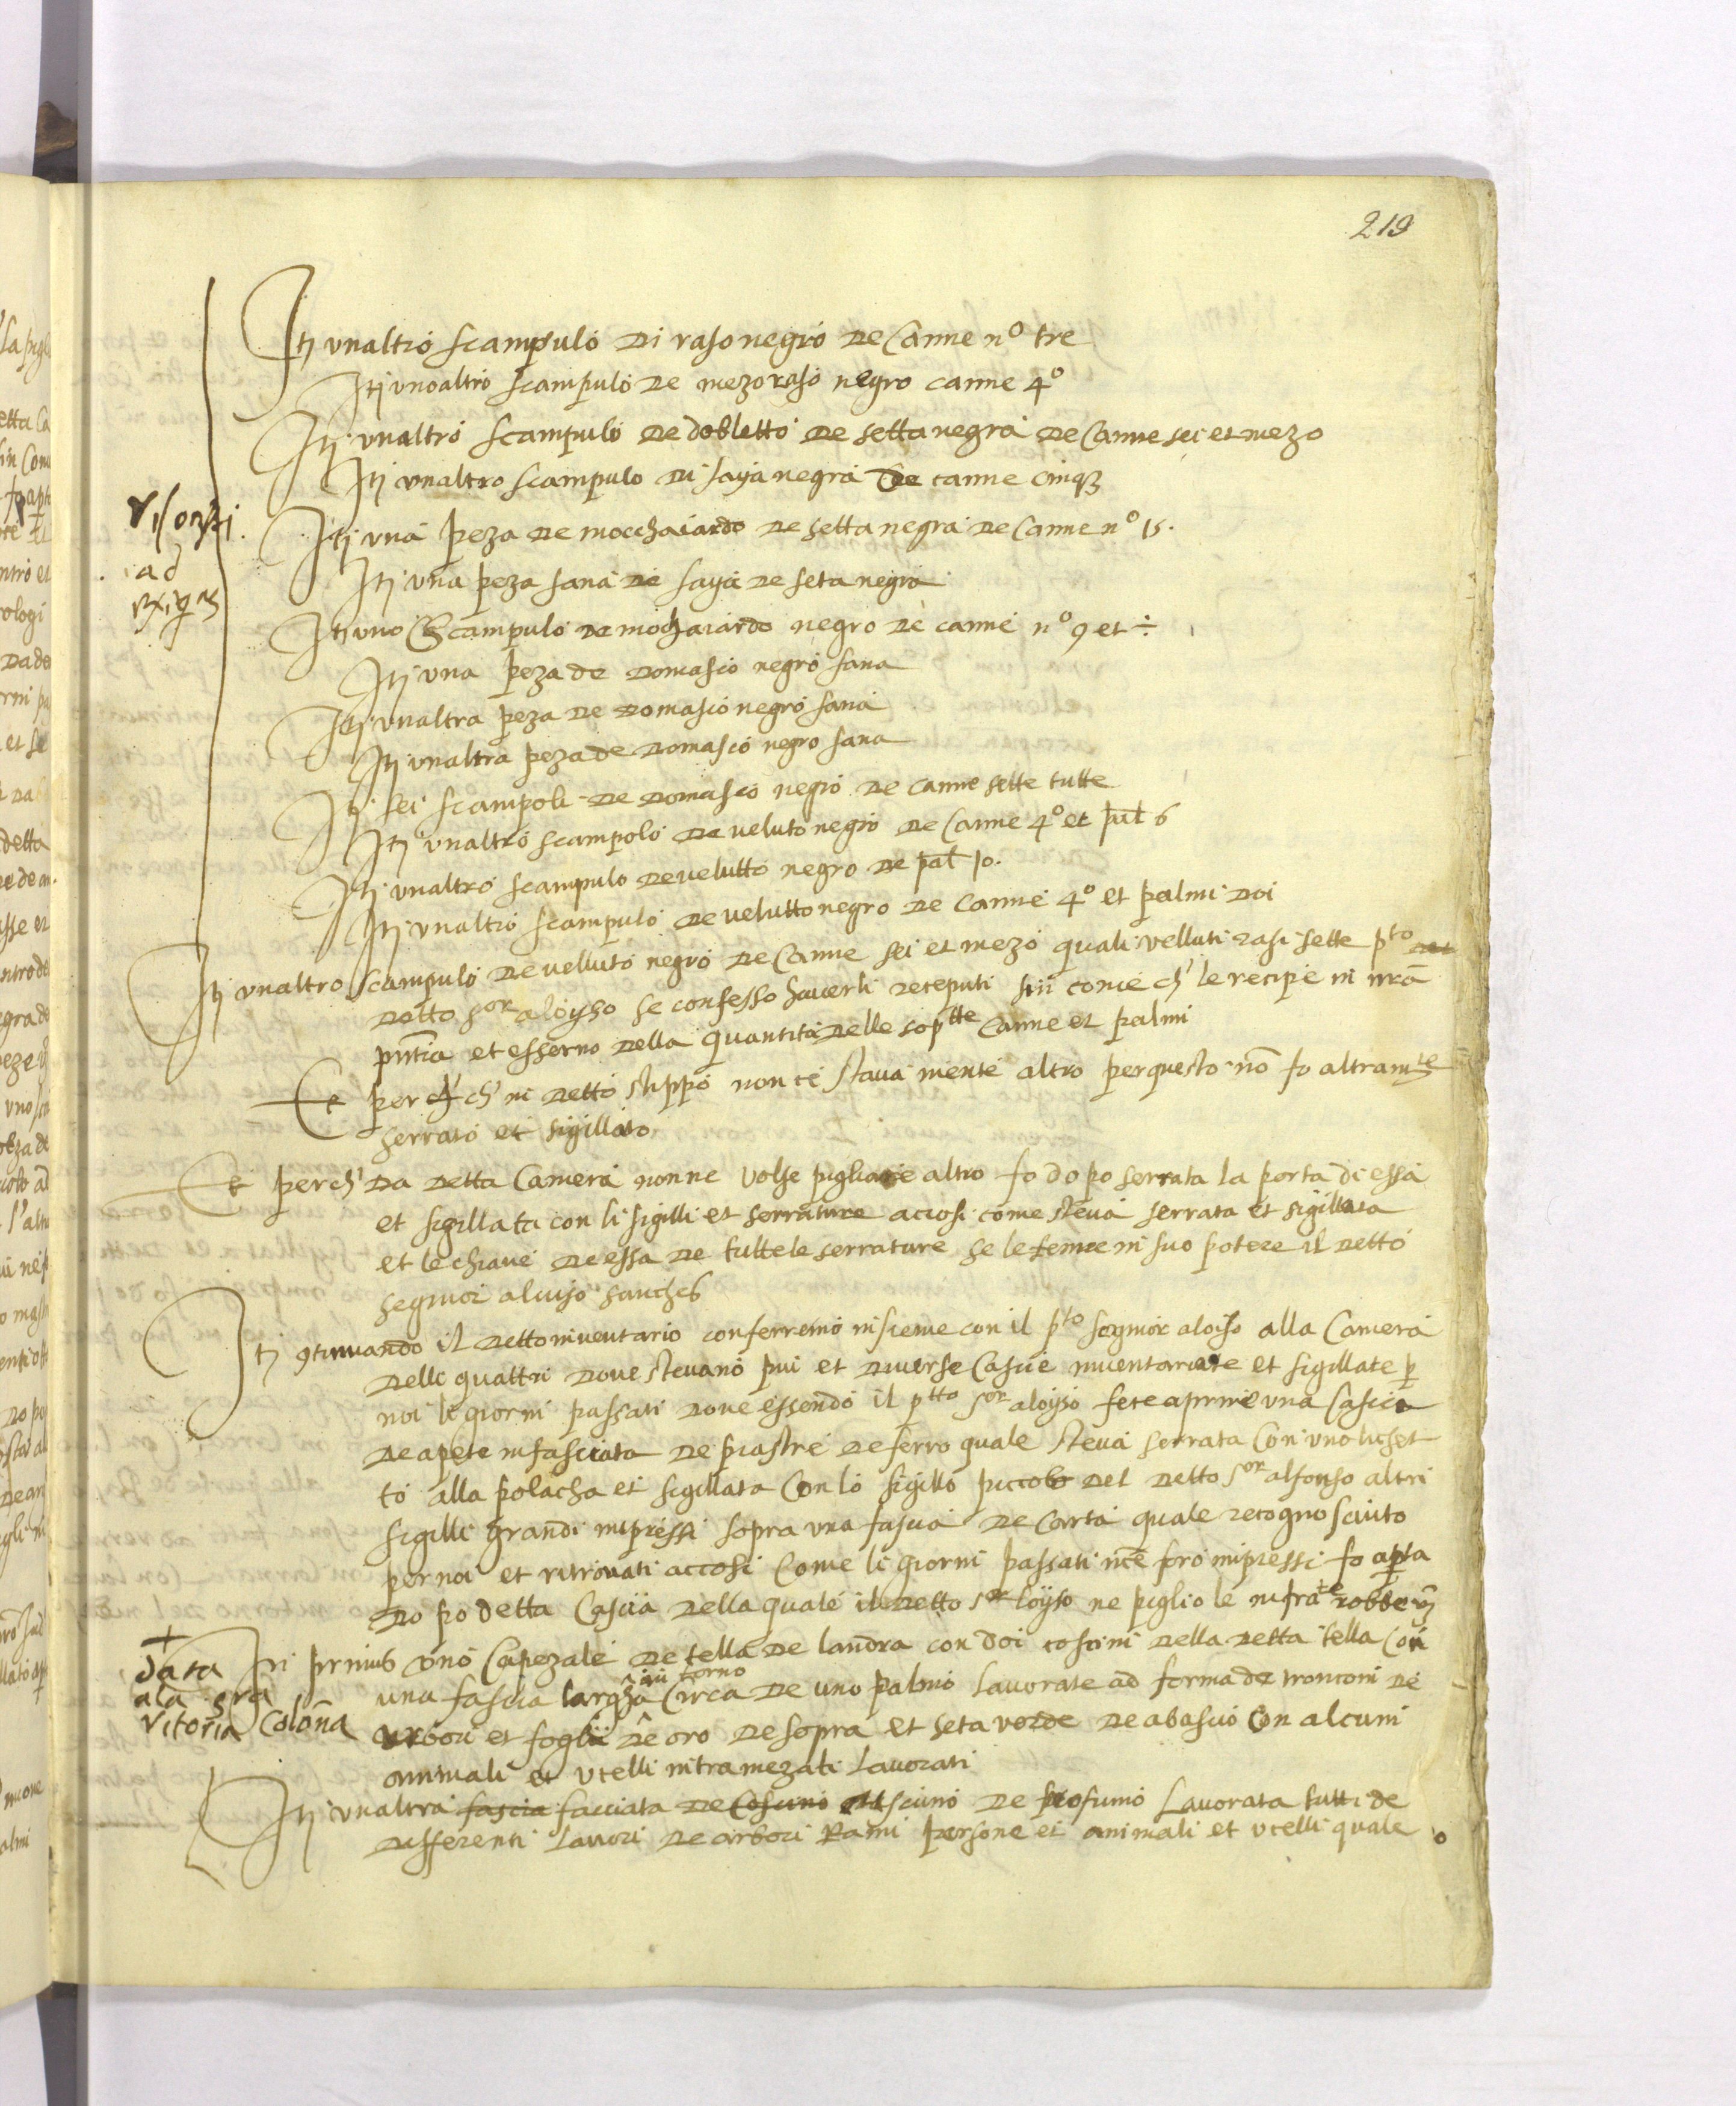 219
Itj unaltro scampulo di raso negro de Canne n° tre
Itj unoaltro scampulo de mezo raso negro canne 4°
Itj unaltro scampulo de dobletto de setta negra de Canne sei et mezo
Itj unaltro scampulo di saya negra de canne cinq3
Itj una peza de mocchaiardo de setta negra de Canne n° 15.
ad
Itj una peza sana de saya de seta negra
Itj uno scampulo de mochaiardo negro de canne n° 9 et ÷
Itj una peza de domasco negro sana
Itj unaltra peza de domasco negro sana
Itj unaltra peza de domasco negro sana
Itj sei scampoli de domasco negro de canne sette tutte
Itj unaltro scampolo de veluto negro de Canne 4° et pal 6
Itj unaltro scampulo de velutto negro de pal 10.
Itj unaltro scampulo de velutto negro de canne 4° et palmi doi
Itj unaltro scampulo de velluto negro de Canne sei et mezo quali velluti rasi sette pto
detto sor aloyso se confesso haverli receputi sicome ch' le recipe in nrã
pntia et esserno della quantita delle soptte canne et palmi
Et per ch' ch' in detto stippo non ce stava niente altro per questo nõ fo altramte
serrato et sigillato
Et perch' da detta Camera non ne volse pigliare altro fo dopo serrata la porta di essa
et sigillata con li sigilli et serrature accosi come steva serrata et sigillata
et le chiave de essa de tutte le serrature se le tenne in suo potere il detto
segnior aluiso sanches
Itj 9tinuando il detto inventario conferremo insieme con il pto segnior aloiso alla Camera
delli quattri dove stevano piu et diverse Casce inventariate et sigillate p
noi li giorni passati dove essendo il ptto sor aloyso fece aprire una Cascia
de apete infasciata de piastre de ferro quale steva serrata Con uno luchet
to alla polacha et sigillata Con lo sigillo piccolo del detto sor alfonso altri
sigilli grandi impressi sopra una fascia de Carta quale recognosciuto
per noi et ritrovati accosi Come li giorni passati nce foro impressi fo apta
Dopo detta Cascia della quale il detto sor loyso ne piglio le infratte robbe vz
+
data
ala sra
Vitoria Colõna
In primis uno Capezale de tella de landra con doi coscini della detta tella Con
in torno
una fascia larga Circa de uno palmo lavorate ad forma de tronconi de
arbori et foglii de oro de sopra et seta verde de abascio Con alcuni
animali et ucelli intramezati lavorati
Itj unaltra fascia facciata de Coscino coscino de profumo Lavorata tutti de
differenti lavori de arbori Rami persone et animali et ucelli quale